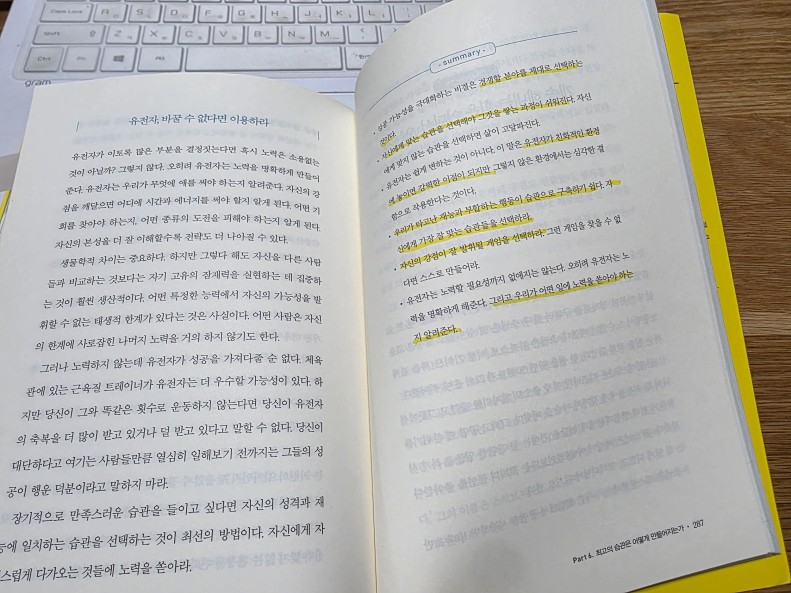 Caps Lock
A
S
D
F
G
H
J
K
L
Shift
Z
X
C
V
B
N
M
Ctrl
Fn
Alt
gram
유전자, 바꿀 수 없다면 이용하라
유전자가 이토록 많은 부분을 결정짓는다면 혹시 노력은 소용없는
것이 아닐까? 그렇지 않다. 오히려 유전자는 노력을 명확하게 만들어
준다. 유전자는 우리가 무엇에 애를 써야 하는지 알려준다. 자신의 강
점을 깨달으면 어디에 시간과 에너지를 써야 할지 알게 된다. 어떤 기
회를 찾아야 하는지, 어떤 종류의 도전을 피해야 하는지 알게 된다.
자신의 본성을 더 잘 이해할수록 전략도 더 나아질 수 있다.
생물학적 차이는 중요하다. 하지만 그렇다 해도 자신을 다른 사람
들과 비교하는 것보다는 자기 고유의 잠재력을 실현하는 데 집중하
는 것이 훨씬 생산적이다. 어떤 특정한 능력에서 자신의 가능성을 발
휘할 수 없는 태생적 한계가 있다는 것은 사실이다. 어떤 사람은 자신
의 한계에 사로잡힌 나머지 노력을 거의 하지 않기도 한다.
그러나 노력하지 않는데 유전자가 성공을 가져다줄 순 없다. 체육
관에 있는 근육질 트레이너가 유전자는 더 우수할 가능성이 있다. 하
지만 당신이 그와 똑같은 횟수로 운동하지 않는다면 당신이 유전자
의 축복을 더 많이 받고 있거나 덜 받고 있다고 말할 수 없다. 당신이
대단하다고 여기는 사람들만큼 열심히 일해보기 전까지는 그들의 성
공이 행운 덕분이라고 말하지 마라.
장기적으로 만족스러운 습관을 들이고 싶다면 자신의 성격과 재
능에 일치하는 습관을 선택하는 것이 최선의 방법이다. 자신에게 자
스럽게 다가오는 것들에 노력을 쏟아라.
· summary ·
• 성공 가능성을 극대화하는 비결은 경쟁할 분야를 제대로 선택하는
것이다.
• 자신에게 맞는 습관을 선택해야 그것을 쌓는 과정이 쉬워진다. 자신
에게 맞지 않는 습관을 선택하면 삶이 고달파진다.
• 유전자는 쉽게 변하는 것이 아니다. 이 말은 유전자가 친화적인 환경
에 놓이면 강력한 이점이 되지만 그렇지 않은 환경에서는 심각한 결
함으로 작용한다는 것이다.
• 우리가 타고난 재능과 부합하는 행동이 습관으로 구축하기 쉽다. 자
신에게 가장 잘 맞는 습관들을 선택하라.
• 자신의 강점이 잘 발휘될 게임을 선택하라. 그런 게임을 찾을 수 없
다면 스스로 만들어라.
• 유전자는 노력할 필요성까지 없애지는 않는다. 오히려 유전자는 노
력을 명확하게 해준다. 그리고 우리가 어떤 일에 노력을 쏟아야 하는
지 알려준다.
Part 6. 최고의 습관은 어떻게 만들어지는가 • 287